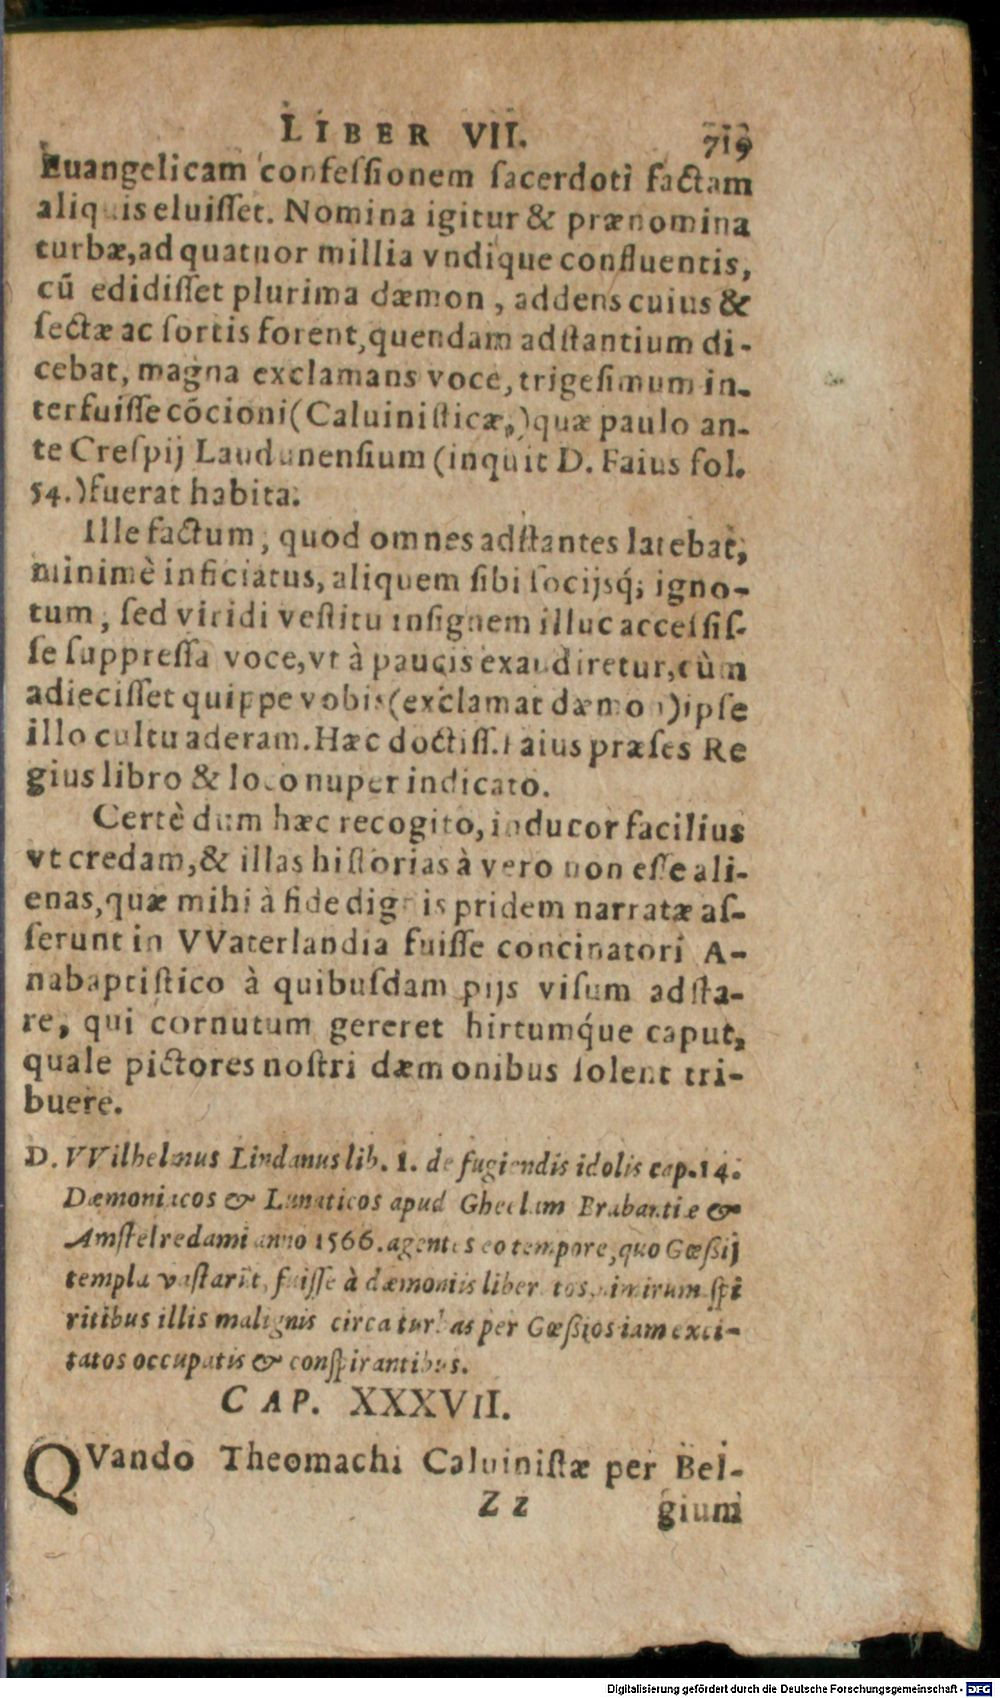 LIBER VII. 719
Euangelicam confeſſionem ſacerdoti factam
aliquis eluiſſet. Nomina igitur & prænomina
turbæ, ad quatuor millia vndique confluentis,
cū edidiſſet plurima dæmon, addens cuius &
ſectæ ac ſortis forent, quendam adſtantium di-
cebat, magna exclamans voce, trigeſimum in-
terfuiſſe cōcioni (Caluiniſticæ,) quæ paulo an-
te Creſpij Laudunenſium (inquit D. Faius fol.
54.) fuerat habita.
Ille factum, quod omnes adſtantes latebat,
minimè inficiatus, aliquem ſibi ſocijsq́; igno-
tum, ſed viridi veſtitu inſignem illuc acceſſiſ-
ſe ſuppreſſa voce, vt à paucis exaudiretur, cùm
adieciſſet quippe vobis (exclamat dæmon) ipſe
illo cultu aderam. Hæc doctiſſ. Faius præſes Re
gius libro & loco nuper indicato.
Certè dum hæc recogito, inducor facilius
vt credam, & illas hiſtorias à vero non eſſe ali-
enas, quæ mihi à fide dignis pridem narratæ aſ-
ſerunt in VVaterlandia fuiſſe concinatori A-
nabaptiſtico à quibuſdam pijs viſum adſta-
re, qui cornutum gereret hirtumq́ue caput,
quale pictores noſtri dæmonibus ſolent tri-
buere.
D. VVilhelmus Lindanus lib. 1. de fugiendis idolis cap. 14.
Dæmoniacos & Lunaticos apud Gheelam Brabantiæ &
Amſtelredami anno 1566. agentes eo tempore, quo Gœßij
templa vaſtarūt, fuiſſe à dæmoniis libertos, nimirum ſpi
ritibus illis malignis circa turbas per Gœßios iam exci-
tatos occupatis & conſpirantibus.
CAP. XXXVII.
QVando Theomachi Caluiniſtæ per Bel-
Z z gium
Digitalisierung gefördert durch die Deutsche Forschungsgemeinschaft - DFG